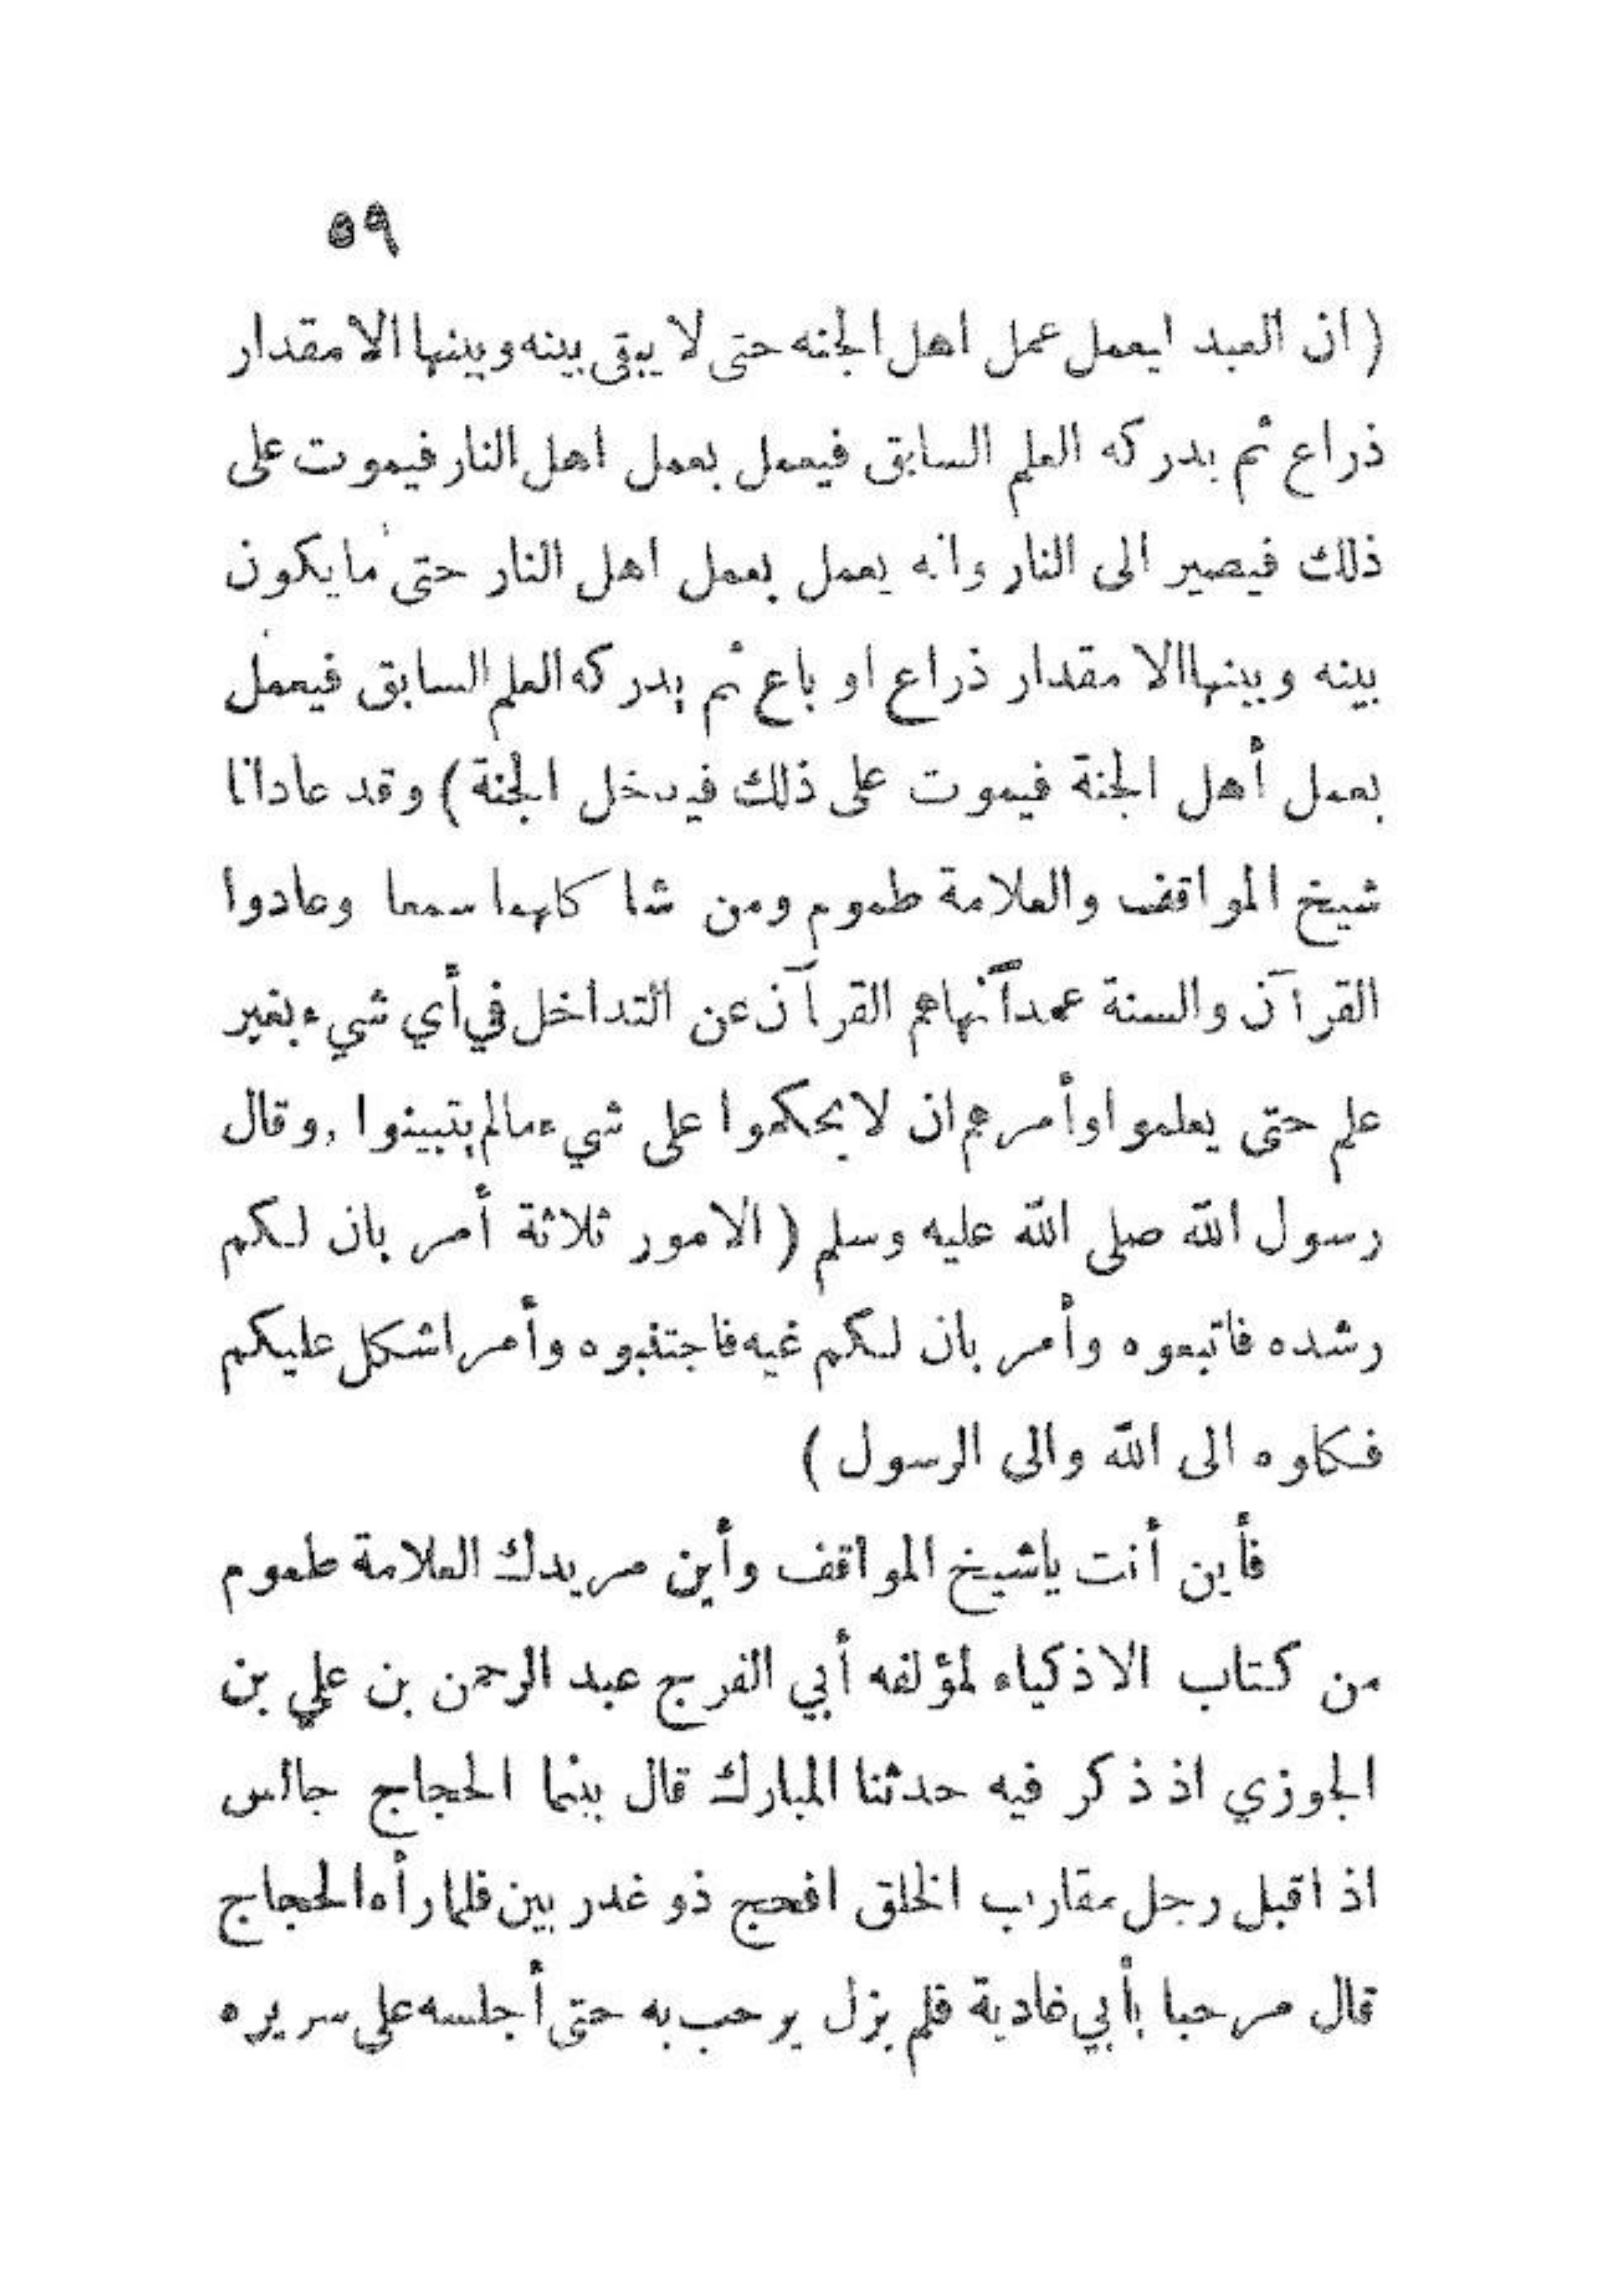 ٥٩
( ان العبد ليعمل عمل اهل الجنه حتى لا يبقى بينه وبينها الا مقدار
ذراع ثم يدركه العلم السابق فيعمل بعمل اهل النار فيموت على
ذلك فيصير الى النار وانه يعمل بعمل اهل النار حتى ما يكون
بينه وبينها الا مقدار ذراع او باع ثم يدركه العلم السابق فيعمل
بعمل أهل الجنة فيموت على ذلك فيدخل الجنة ) وقد عادانا
شيخ المواقف والعلامة طموم ومن شا كلهما سمعا وعادوا
القرآن والسنة عمداً نهاهم القرآن عن التداخل في أي شيء بغير
علم حتى يعلموا وأمرهم ان لا يحكموا على شيء مالم يتبينوا , وقال
رسول الله صلى الله عليه وسلم ( الامور ثلاثة أمر بان لكم
رشده فاتبعوه وأمر بان لكم غيه فاجتنبوه وأمر اشكل عليكم
فكلوه الى الله والى الرسول )
فأين أنت ياشيخ المواقف وأين مريدك العلامة طموم
من كتاب الاذكياء لمؤلفه أبي الفرج عبد الرحمن بن علي بن
الجوزي اذ ذكر فيه حدثنا المبارك قال بينما الحجاج جالس
اذ اقبل رجل مقارب الخلق افحج ذو غدر بين فلما رأه الحجاج
قال مرحبا بأبي غادية فلم يزل يرحب به حتى أجلسه على سريره